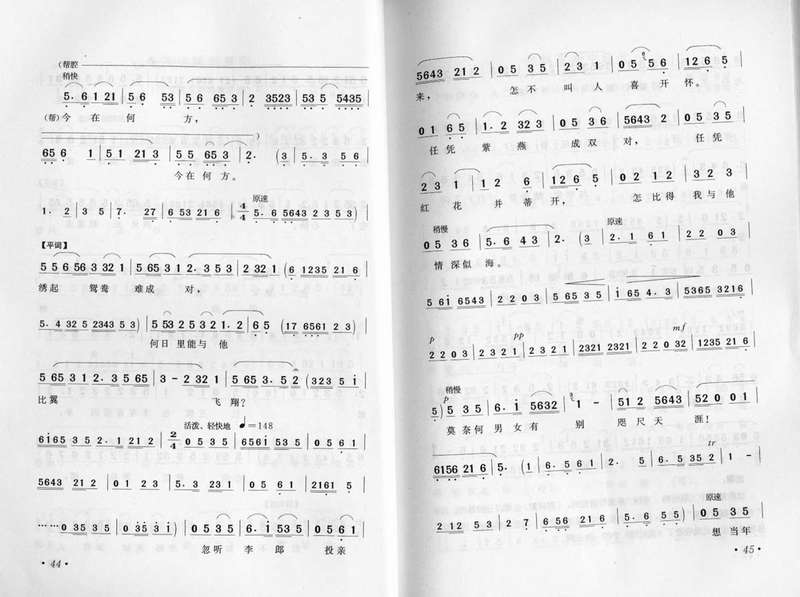 (帮腔
稍快
5. 6 1 21 | 5 6 53 | 5 6 65 3 | 2 3523 | 53 5 5435
(帮)今 在 何 方,
656 1 | 5 1 21 3 | 5 5 65 3 | 2. (3 | 5. 3 5 6
今在何方。
原速
1. 2 | 3 5 | 7. 27 | 6 53 21 6 | 4/4 5. 6 5643 2 3 5 3)
【平词】
5 5 6 56 3 32 1 | 5 65 3 1 2. 3 5 3 | 2 32 1 (6 1235 21 6
绣起 鸳鸯 难成 对,
5. 4 32 5 2343 5 3) | 5 53 2 5 32 1. 2 | 6 5 (17 6561 2 3)
何日里能与他
5 65 3 1 2. 3 5 65 | 3 - 2 32 1 | 5 65 3. 5 2 (323 5 i
比翼 飞翔?
活泼、轻快地 ♩=148
6i65 35 2. 1 21 2 | 2/4 0 5 3 5 | 656i 5 3 | 0 5 6 1
5643 21 2 | 0 1 2 1 | 5. 1 23 1 | 0 5 6 1 | 2161 5
……0 35 3 5 | 0 3 5 3 5) | 0 5 3 5 | 6. i 53 5 | 0 5 6 1
忽听 李 郎 投亲
· 44 ·
5643 21 2 | 0 5 3 5 | 2 3 1 | 0 5 5 6 | 12 6 5
来, 怎不 叫人 喜开 怀。
0 1 6 5 | 1. 2 32 3 | 0 5 3 6 | 5643 2 | 0 5 3 5
任凭 紫燕 成双 对, 任凭
2 3 1 | 1 2 6 | 12 6 5 | 0 5 3 5 | 2 3 1
红花 并蒂 开, 怎比得 我与他
稍慢 原速
0 5 3 6 | 5. 6 4 3 | 2. (3 | 2. 1 6 1 | 2 2 0 3
情深似 海。
5 6i 6543 | 2 2 0 3 | 5 65 3 5 | i 65 4. 3 | 5365 3216
p pp mf
2 2 0 3 | 2 32 1 | 2 32 1 | 2321 2321 | 2 2 0 32 | 1235 21 6
稍慢
p
5) 5 3 5 | 6. i 5632 | 1 - | 51 2 5643 | 5 2 0 0 1
莫奈何 男女有 别 咫尺天 涯!
tr
6156 21 6 | 5. (1 | 6. 5 6 1 | 2. 5 | 6. 5 35 2 | 1 -
原速
2 12 5 3 | 2 7 | 6 56 21 6 | 5. 6 5 5) | 0 5 3 5
想当年
· 45 ·